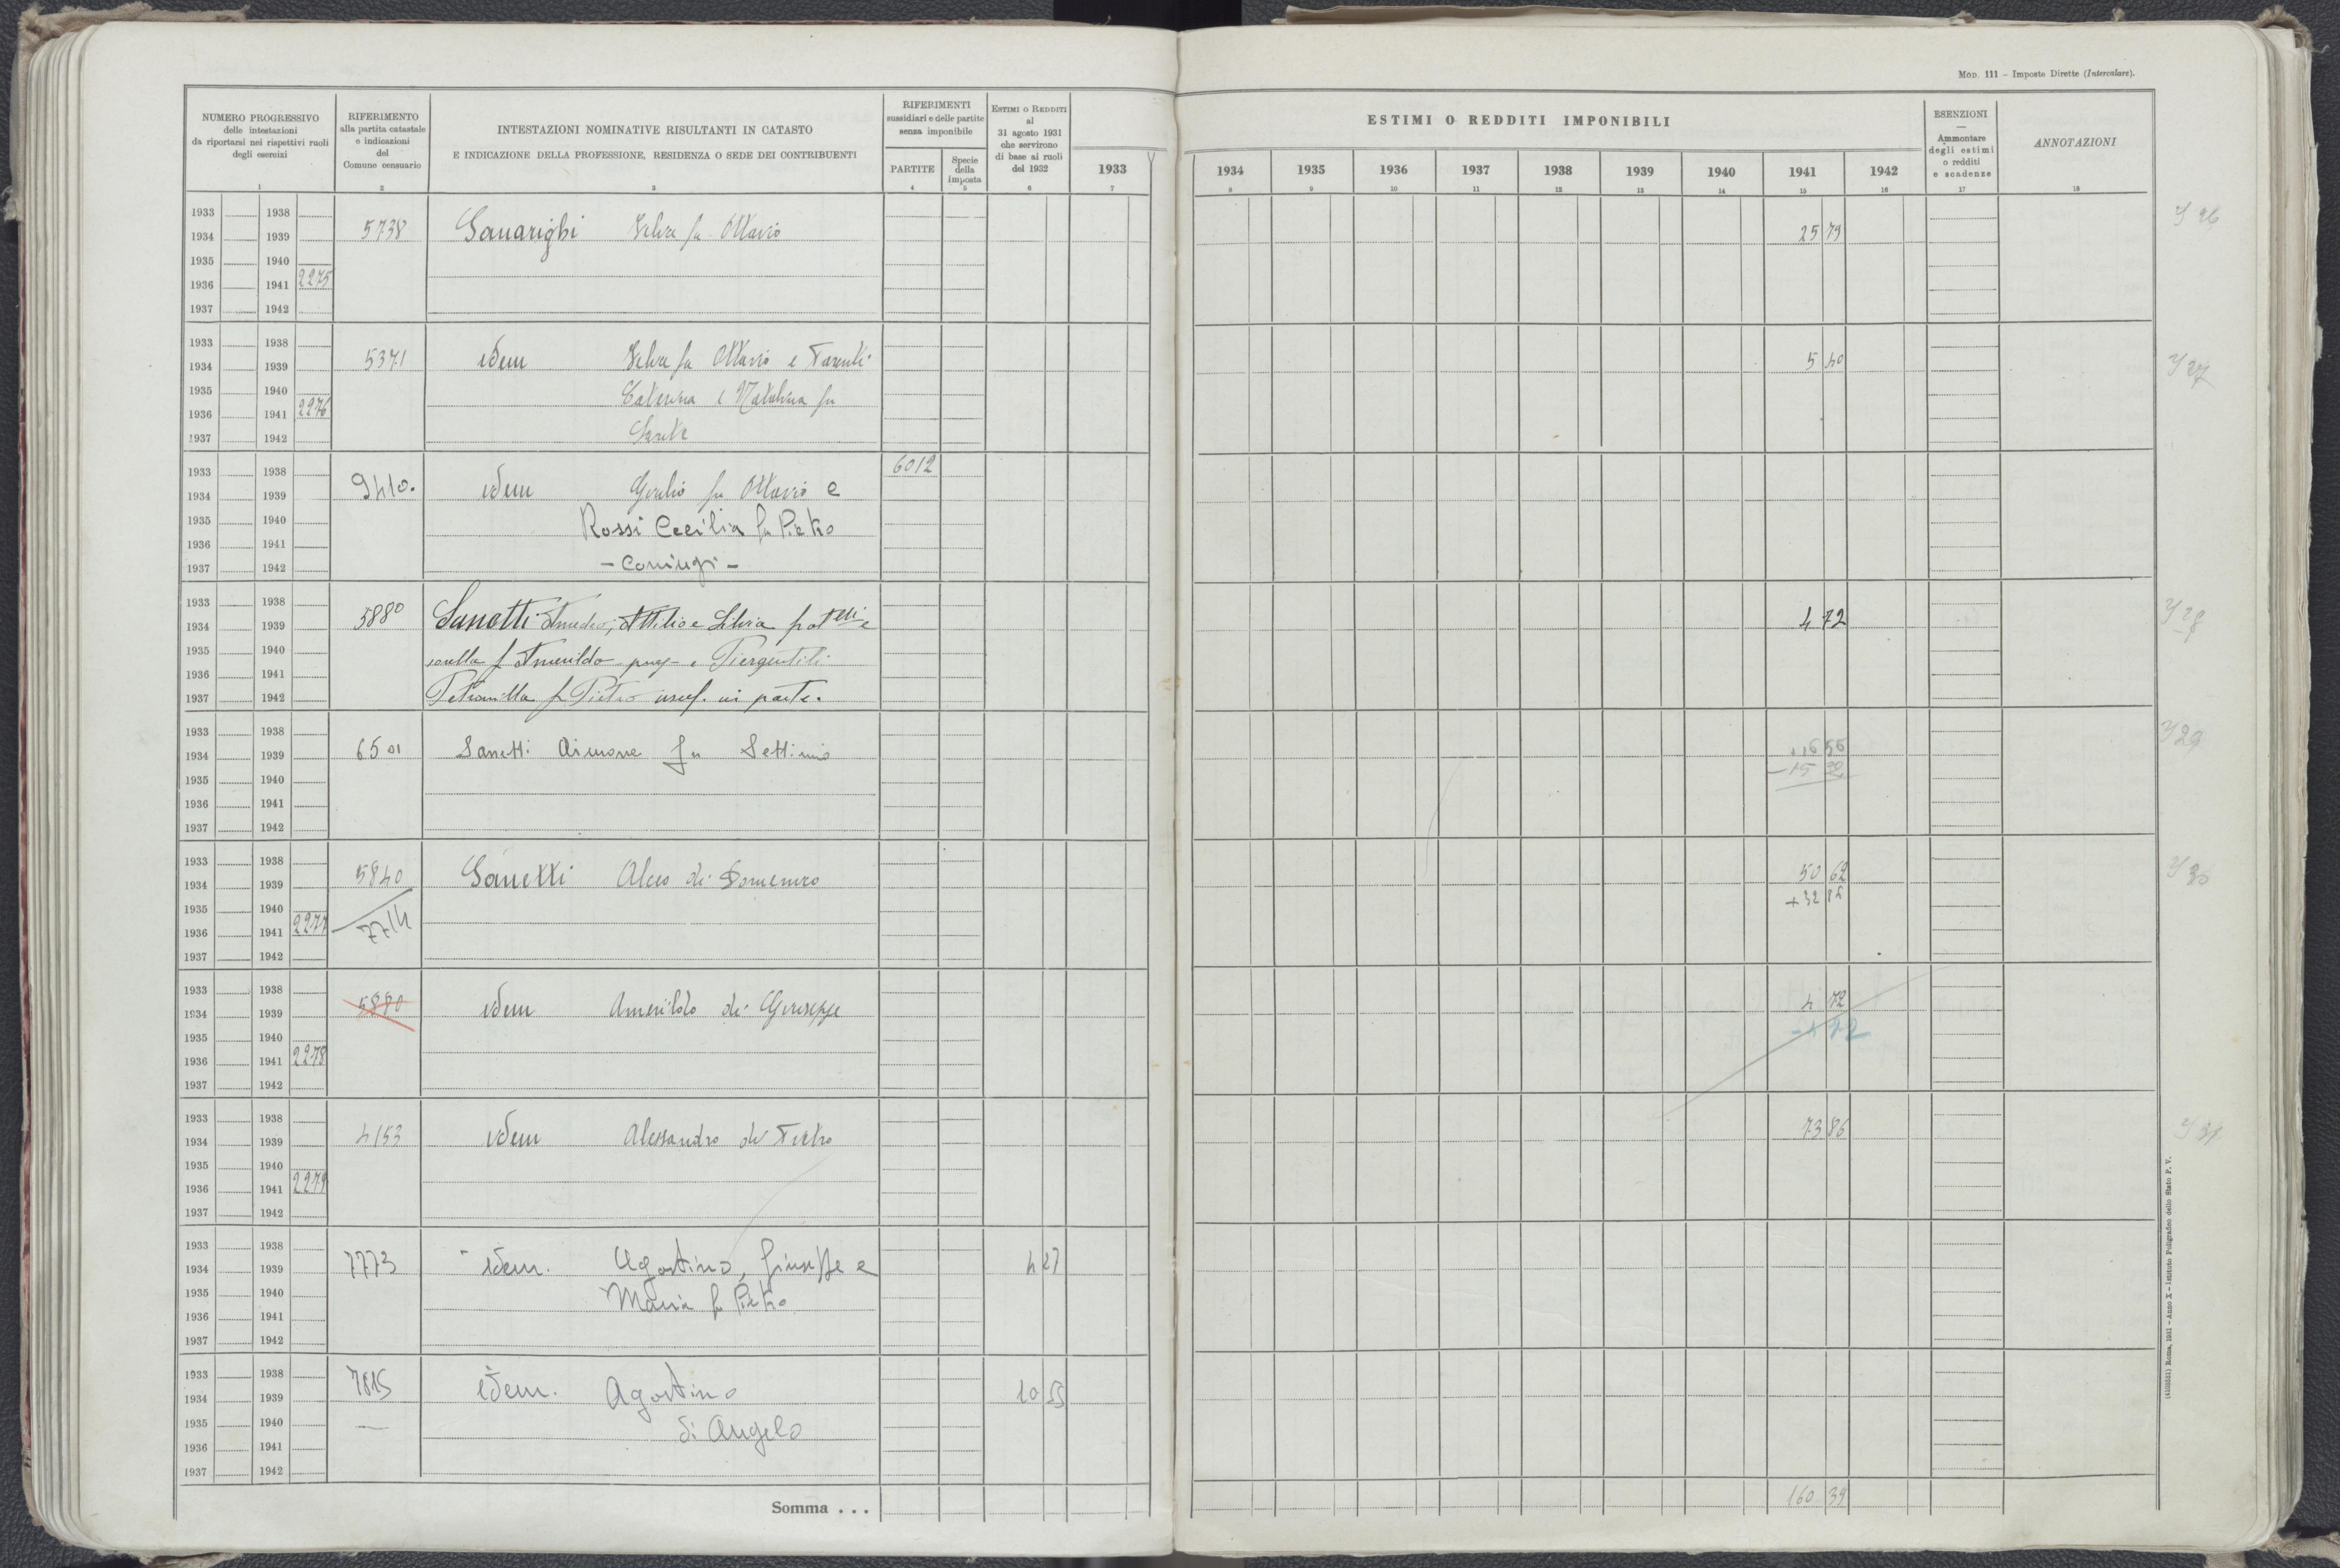 MOD. 111 - Imposte Dirette (Intercalare).
NUMERO PROGRESSIVO
delle intestazioni
da riportarsi nei rispettivi ruoli
degli esercizi
RIFERIMENTO
alla partita catastale
e indicazioni
del
Comune censuario
INTESTAZIONI NOMINATIVE RISULTANTI IN CATASTO
E INDICAZIONE DELLA PROFESSIONE, RESIDENZA O SEDE DEI CONTRIBUENTI
RIFERIMENTI
sussidiari e delle partite
senza imponibile
PARTITE
Specie
della
imposta
ESTIMI O REDDITI
al
31 agosto 1931
che servirono
di base ai ruoli
del 1932
ESTIMI O REDDITI IMPONIBILI
1933 1934 1935 1936 1937 1938 1939 1940 1941 1942
ESENZIONI
Ammontare
degli estimi
o redditi
e scadenze
ANNOTAZIONI
1 2 3 4 5 6 7 8 9 10 11 12 13 14 15 16 17 18
1933 1938
1934 1939 5738 fu Ottavio 25 79
1935 1940
1936 1941 2275
1937 1942
1933 1938
1934 1939 5371 idem fu Ottavio e 5 40
1935 1940 Caterina e fu
1936 1941 2276
1937 1942
1933 1938 6012
1934 1939 9410. idem Giulio fu Ottavio e
1935 1940 Rossi Cecilia fu Pietro
1936 1941
1937 1942 - Coniugi -
1933 1938
1934 1939 5880 Sanetti Amedeo, Attilio e Silvia fratelli e 4 72
1935 1940 sorella f Amerildo e Piergentili
1936 1941
1937 1942 Petronilla fu Pietro usuf. in parte.
1933 1938
1934 1939 6501 Sanetti Aimone fu Settimio
1935 1940
1936 1941
1937 1942
1933 1938
1934 1939 5840 Sanetti Alceo di Domenico 50 62
1935 1940 +32 82
1936 1941 2277 7714
1937 1942
1933 1938
1934 1939 5880 idem Amerildo di Giuseppe 4 72
1935 1940 -4 72
1936 1941 2278
1937 1942
1933 1938
1934 1939 4153 idem Alessandro di Pietro 73 86
1935 1940
1936 1941 2279
1937 1942
1933 1938
1934 1939 7773 idem. Agostino, Giuseppe e 4 27
1935 1940 Maria fu Pietro
1936 1941
1937 1942
1933 1938
1934 1939 7815 idem. Agostino 10 55
1935 1940 di Angelo
1936 1941
1937 1942
Somma . . . 160 39
(4103551) Roma, 1931 - Anno X - Istituto Poligrafico dello Stato P. V.